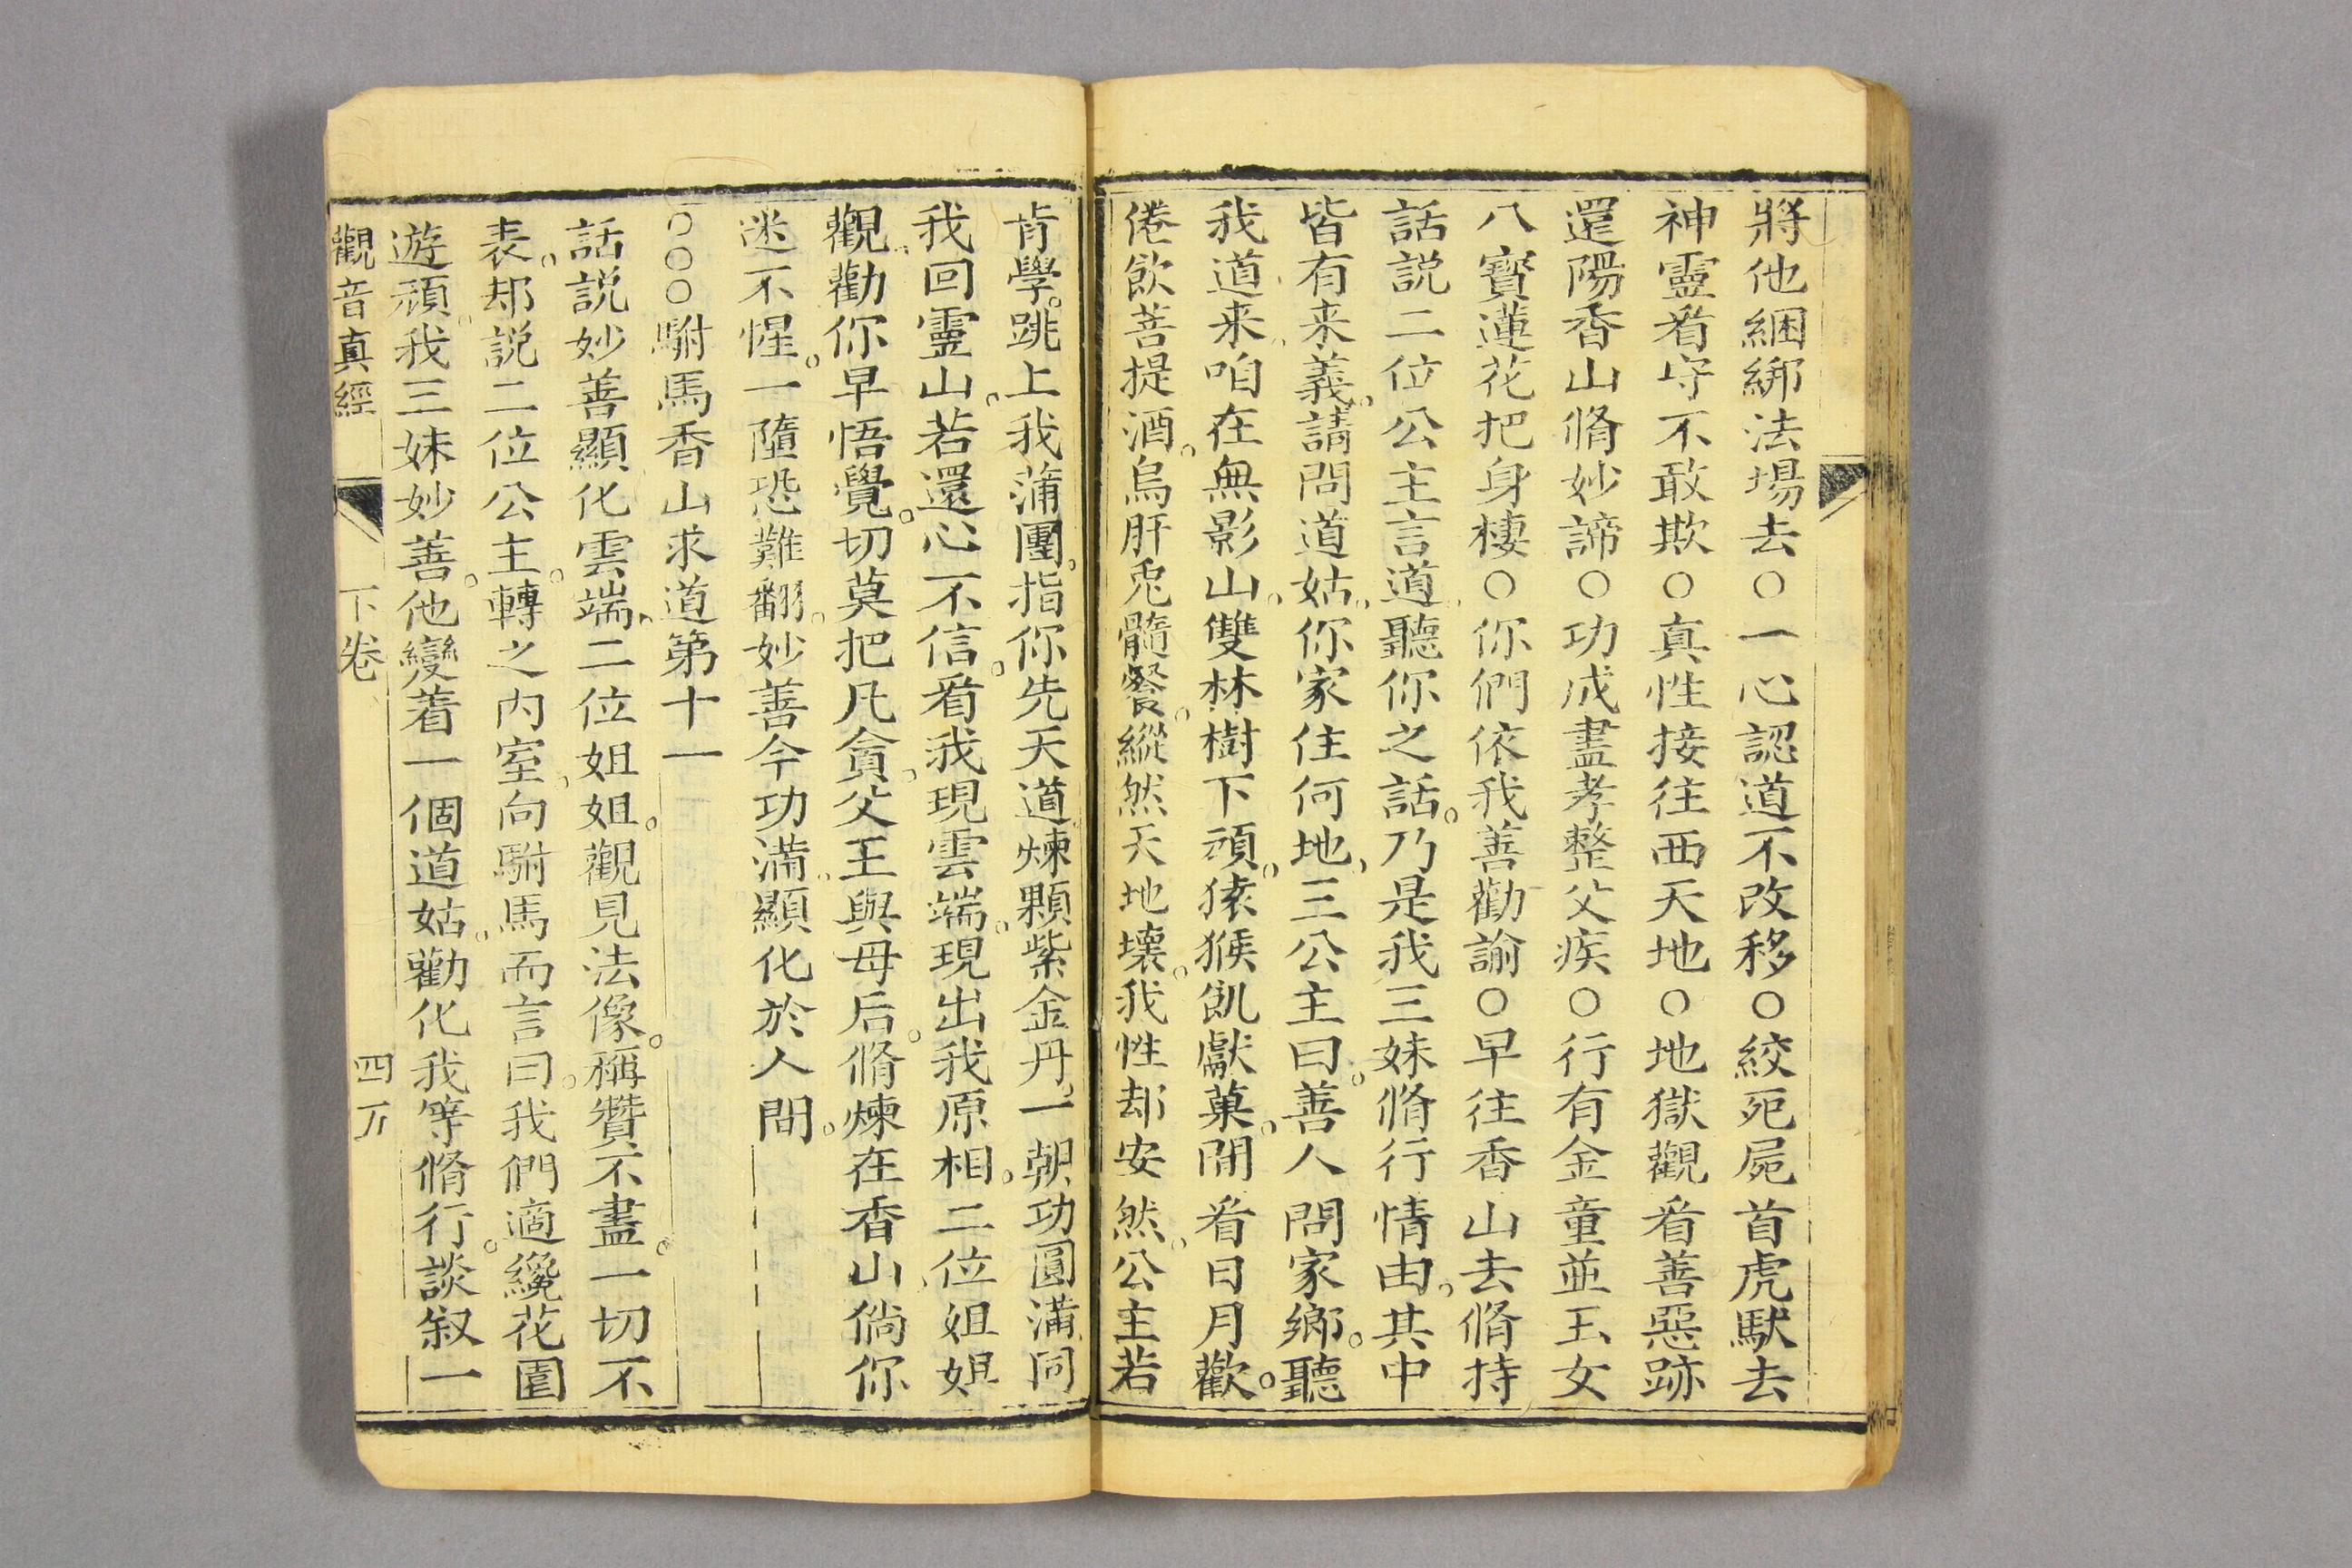 將他綑綁法塲去○一心認道不改移○絞死屍首虎馱去
神靈看守不敢欺○真性接往西天地○地獄觀看善惡跡
還陽香山脩妙諦○功成盡孝整父疾○行有金童並玉女
八寳蓮花把身棲○你們依我善勸諭○早往香山去脩持
話説二位公主言道聽你之話。乃是我三妹脩行情由。其中
皆有来義。請問道姑。你家住何地。三公主曰。善人問家鄉。聽
我道来。咱在無影山。雙林樹下頑。猿猴飢獻菓。閒看日月歡。
倦飲菩提酒。烏肝兎髓餐。縱然天地壞。我性却安然。公主若
肯學。跳上我蒲團。指你先天道。煉顆紫金丹。一朝功圓滿。同
我回靈山。若還心不信。看我現雲端。現出我原相。二位姐姐
觀。勸你早悟覺。切莫把凡貪。父王與母后。脩煉在香山。倘你
迷不惺。一墮恐難翻。妙善今功滿。顯化於人間。
○○○駙馬香山求道第十一
話説妙善顯化雲端。二位姐姐。觀見法像。稱贊不盡。一切不
表。却説二位公主。轉之内室。向駙馬而言曰。我們適纔花園
遊頑。我三妹妙善。他變着一個道姑。勸化我等脩行。談叙一
觀音真經 下卷 四